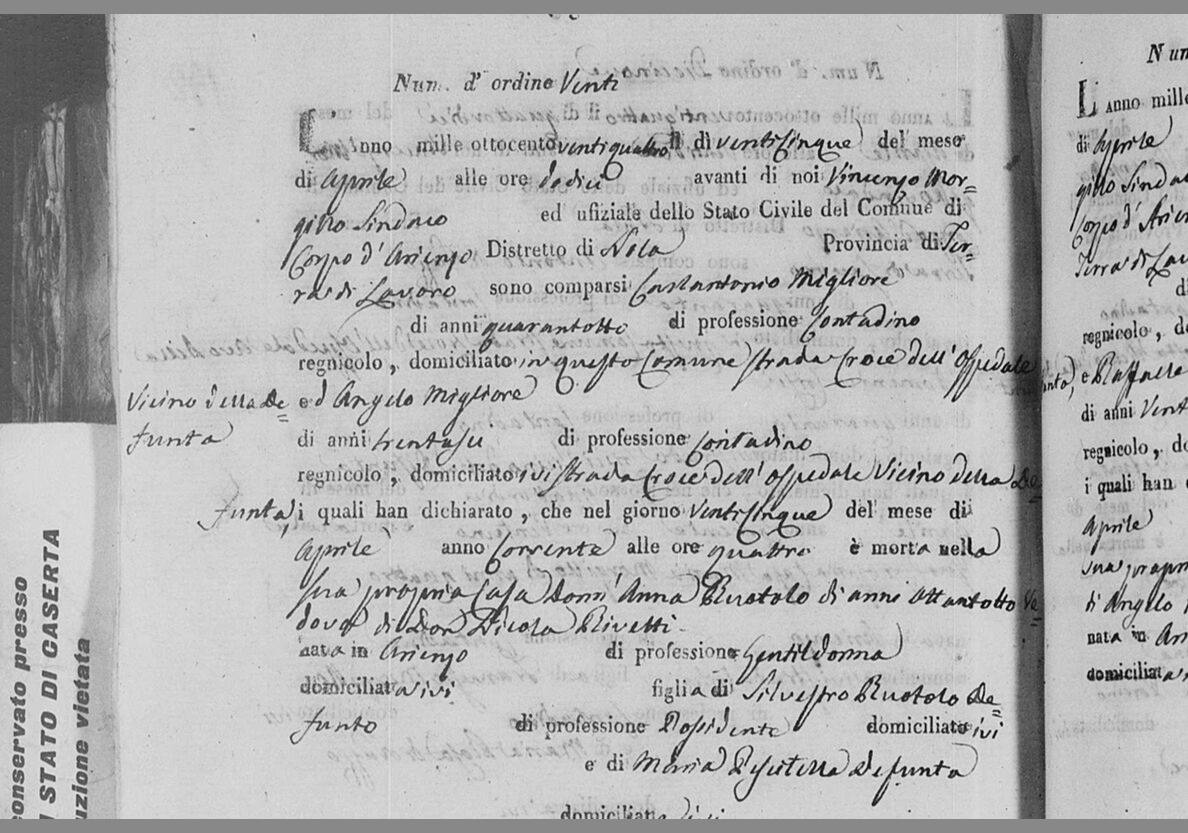 Num. d' ordine Venti
L' Anno mille ottocento ventiquattro li di venticinque del mese
di Aprile alle ore dodici avanti di noi Vincenzo Mor=
gillo Sindaco ed ufiziale dello Stato Civile del Comune di
Corpo d' Arienzo Distretto di Nola Provincia di Ter=
ra di Lavoro sono comparsi Costantonio Migliore
di anni quarantotto di professione Contadino
regnicolo, domiciliato in questo Comune strada Croce dell' Ospedale
Vicino della De= e d Angelo Migliore
funta
di anni trentasei di professione Contadino
regnicolo, domiciliato ivi strada Croce dell' Ospedale Vicino della De=
funta, i quali han dichiarato, che nel giorno Venticinque del mese di
Aprile anno Corrente alle ore quattro è morta nella
sua propria Casa Donn' Anna Ruotolo di anni Ottantotto Ve=
dova di Don Nicola Rivetti.
nata in Arienzo di professione Gentildonna
domiciliata ivi figlia di Silvestro Ruotolo De=
funto di professione Possidente domiciliato ivi
e di Maria Defunta
domiciliata ivi
Num
L' Anno mille
di Aprile
gillo Sindaco
Corpo d' Arien
Terra di Lav
di
regnicolo, do
e Raffaele
di anni Vent
regnicolo, do
i quali han
Aprile
sua propri
di Angelo
nata in Ar
domiciliata
conservato presso
STATO DI CASERTA
uzione vietata